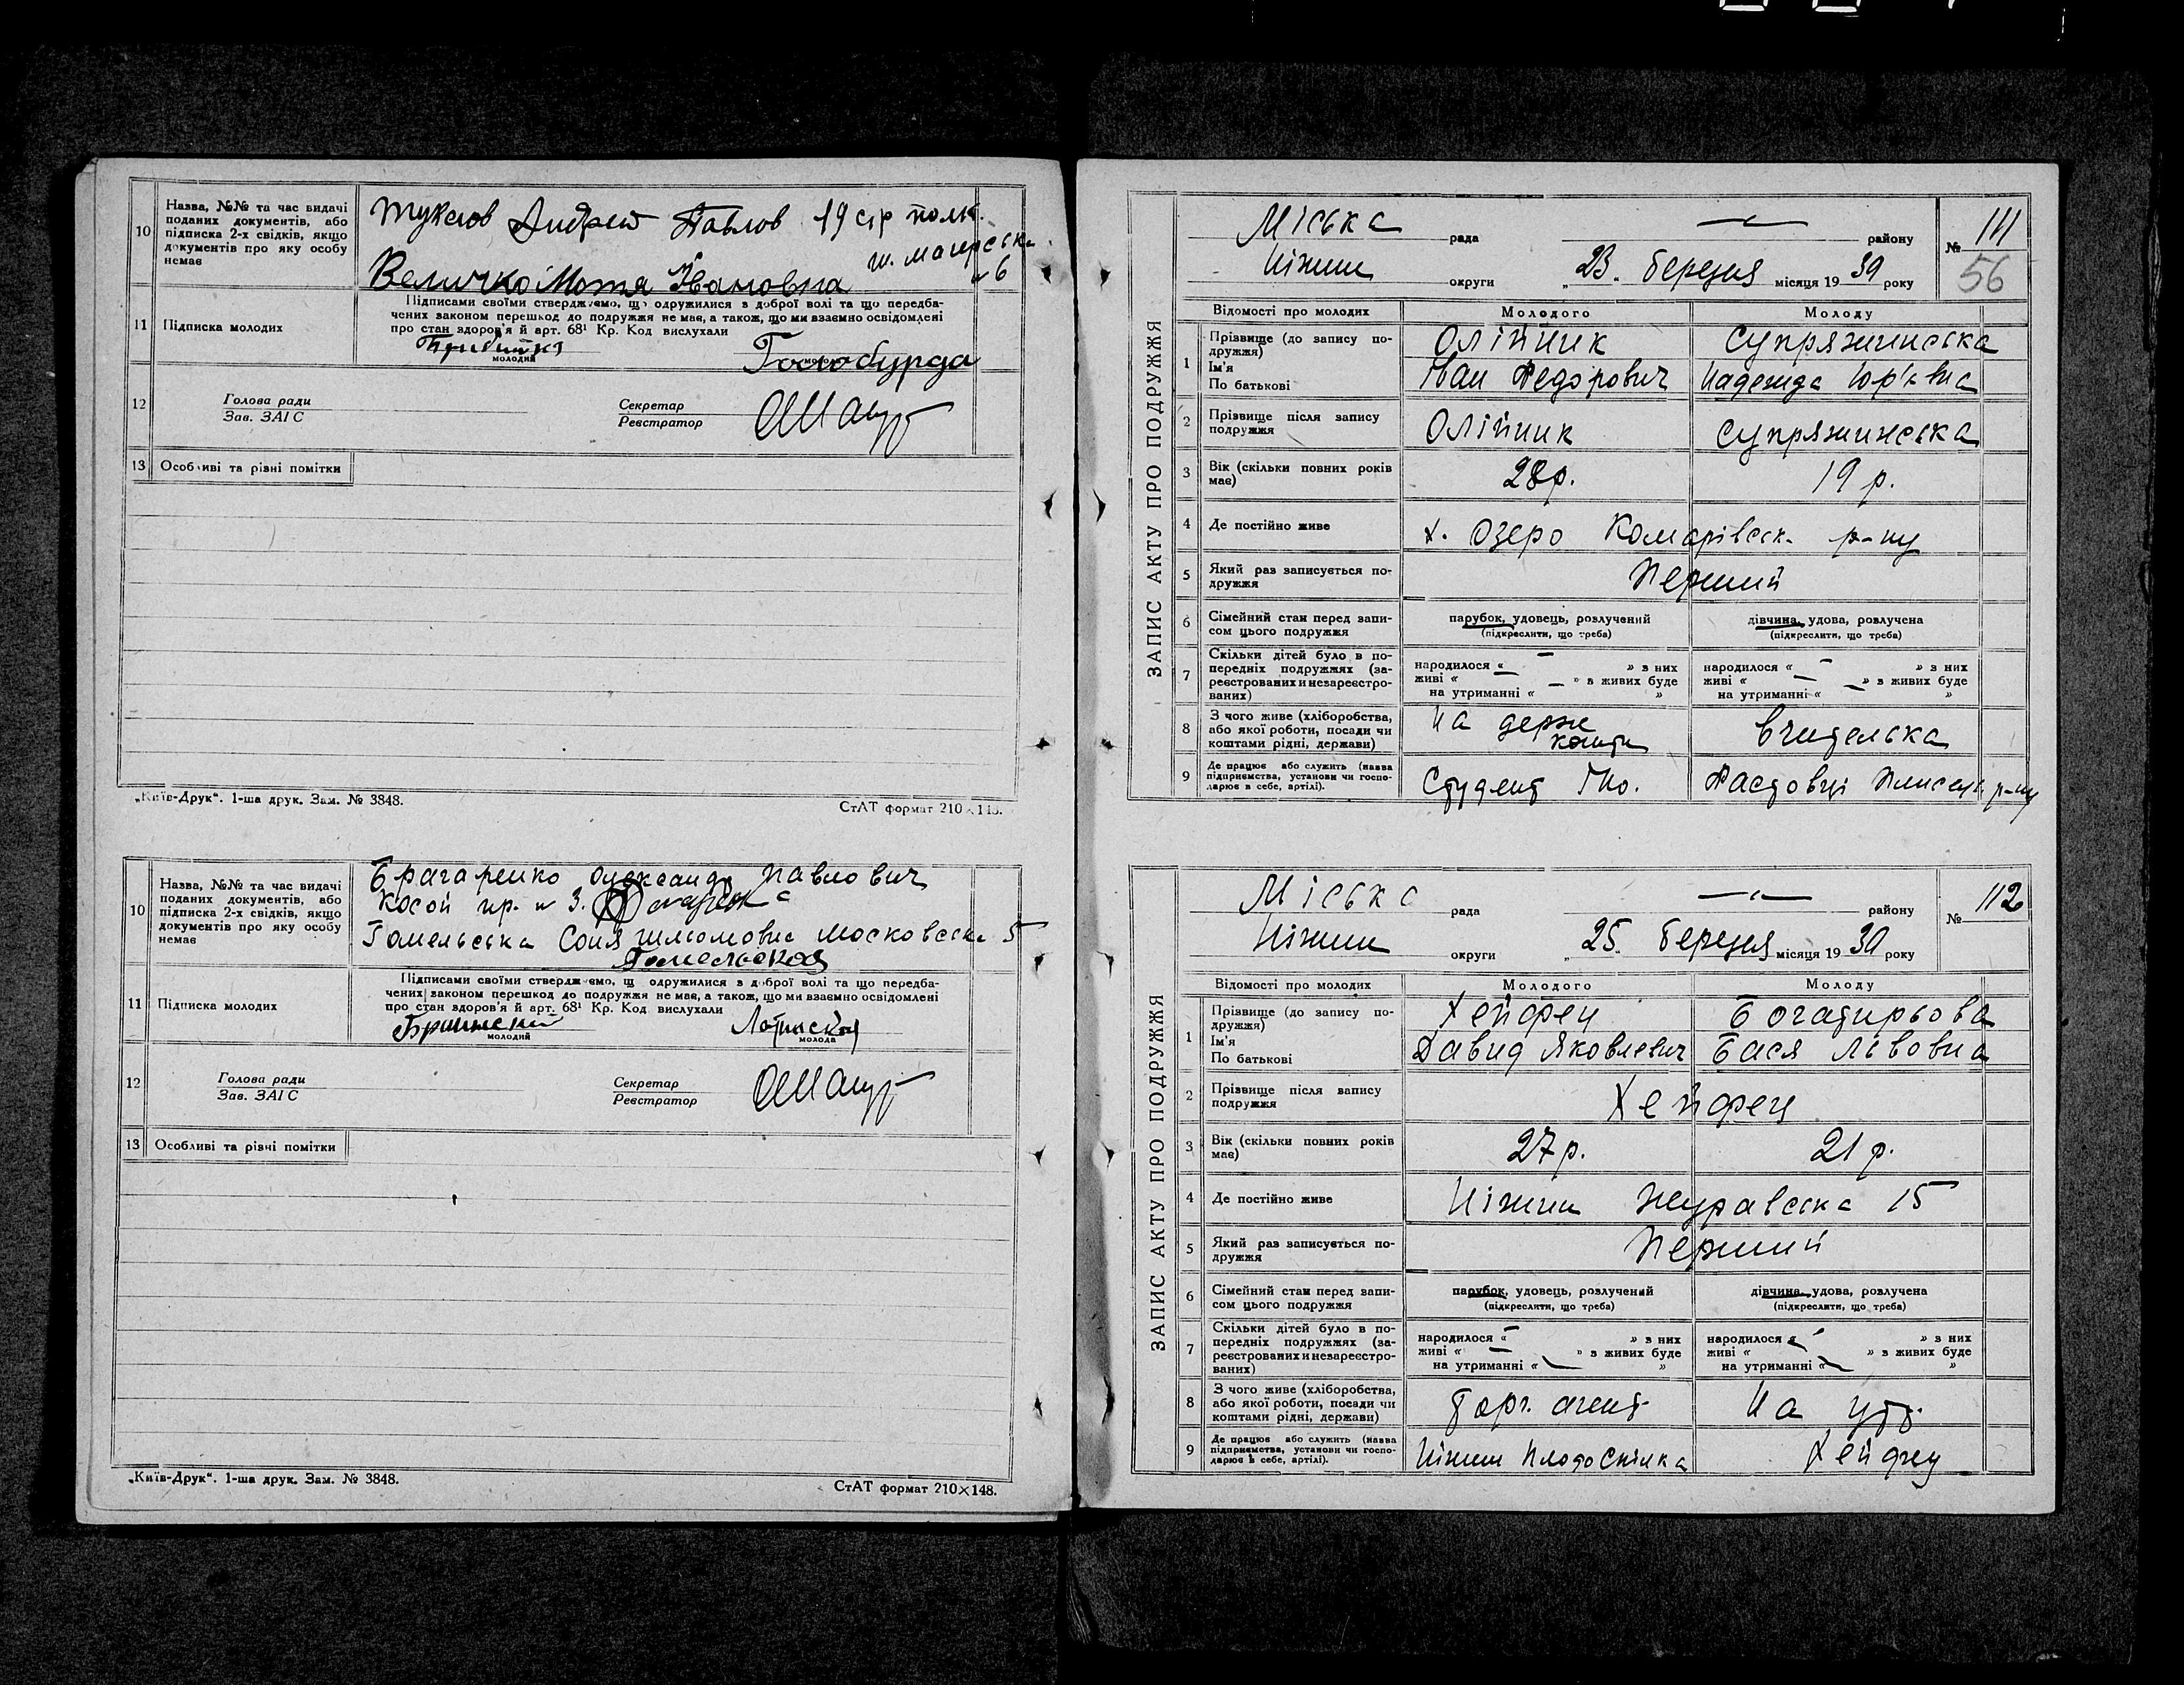 10 Назва, №№ та час видачі поданих документів, або підписка 2-х свідків, якщо документів про яку особу немає
Андрей Павлов 19 стр полк.
Величко Мотя Івановна
№ 6
11 Підписка молодих
Підписами своїми стверджуємо, що одружилися з доброї волі та що передба-
чених законом перешкод до подружжя не має, а також, що ми взаємно освідомлені
про стан здоров'я й арт. 68¹ Кр. Код вислухали
молодий
Голобурда
12 Голова ради
Зав. ЗАГС
Секретар
Реєстратор
13 Особливі та різні помітки
„Київ-Друк“. 1-ша друк. Зам. № 3848.
СтАТ формат 210×148.
10 Назва, №№ та час видачі поданих документів, або підписка 2-х свідків, якщо документів про яку особу немає
Брагаренко Олександр Павлович
Косой пр. № 3.
Гомельська Соня Шльомовна Московська 5
Гомельская
11 Підписка молодих
Підписами своїми стверджуємо, щ одружилися з доброї волі та що передба-
чених законом перешкод до подружжя не має, а також, що ми взаємно освідомлені
про стан здоров'я й арт. 68¹ Кр. Код вислухали
молодий
молода
12 Голова ради
Зав. ЗАГС
Секретар
Реєстратор
13 Особливі та різні помітки
„Київ-Друк“. 1-ша друк. Зам. № 3848.
СтАТ формат 210×148.
ЗАПИС АКТУ ПРО ПОДРУЖЖЯ
Міська рада — району № 111
Ніжин округи „23. березня місяця 1930 року
56
Відомості про молодих Молодого Молоду
1 Прізвище (до запису подружжя) Олійник Супряжинська
Ім'я
По батькові Іван Федорович Надежда Юр'євна
2 Прізвище після запису подружжя Олійник Супряжинська
3 Вік (скільки повних років має) 28 р. 19 р.
4 Де постійно живе х. Озеро Комарівськ. р-ну
5 Який раз записується подружжя Перший
6 Сімейний стан перед записом цього подружжя парубок, удовець, розлучений дівчина, удова, розлучена
(підкреслити, що треба) (підкреслити, що треба)
7 Скільки дітей було в попередніх подружжях (зареєстрованих и незареєстрованих)
народилося « — » з них народилося « — » з них
живі « — » з живих буде живі « — » з живих буде
на утриманні « — » на утриманні « — »
8 З чого живе (хліборобства, або якої роботи, посади чи коштами рідні, держави) На держ кошти вчителька
9 Де працює або служить (назва підприємства, установи чи господарює в себе, артілі). Студент ІНО. Фастовці р-ну
ЗАПИС АКТУ ПРО ПОДРУЖЖЯ
Міська рада — району № 112
Ніжин округи „25. березня місяця 1930 року
Відомості про молодих Молодого Молоду
1 Прізвище (до запису подружжя) Хейфец Богатирьова
Ім'я
По батькові Давид Яковлевич Бася Львовна
2 Прізвище після запису подружжя Хейфец
3 Вік (скільки повних років має) 27 р. 21 р.
4 Де постійно живе Ніжин Журавська 15
5 Який раз записується подружжя Перший
6 Сімейний стан перед записом цього подружжя парубок, удовець, розлучений дівчина, удова, розлучена
(підкреслити, що треба) (підкреслити, що треба)
7 Скільки дітей було в попередніх подружжях (зареєстрованих и незареєстрованих)
народилося « — » з них народилося « — » з них
живі « — » з живих буде живі « » з живих буде
на утриманні « — » на утриманні « — »
8 З чого живе (хліборобства, або якої роботи, посади чи коштами рідні, держави) торг. агент На утр.
9 Де працює або служить (назва підприємства, установи чи господарює в себе, артілі). Ніжин Плодоспілка Хейфец